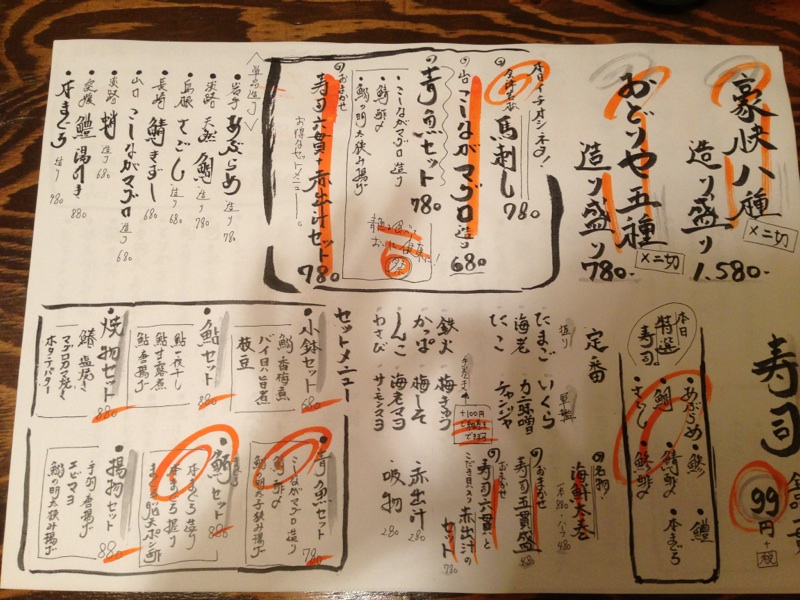 豪快八種
造り盛り
×二切
1.580-
おどりや五種
造り盛り
×二切
780-
本日イチオシネタ!
馬刺し
780
山口
こしながマグロ
造り
680
青魚セット
780
・こしながマグロ 造り
・鯖明太挟み揚げ
おまかせ
寿司六貫+赤出汁セット
お得なセットメニュー。
780
単品造り
・岩手 あぶらめ 造り 780
・淡路 天然鯛 造り 780
・島根 さごし 造り 680
・長崎 鯖きずし 680
・山口 こしながマグロ 造り 680
・淡路 蛸 造り 680
・愛媛 鱧湯引き 880
・本まぐろ 造り 980
寿司
99円+税
本日
特選
寿司。
・あぶらめ
・鱧
・鯛
・本まぐろ
・さごし
定番
造り
たまご
いくら
海老
カニ味噌
たこ
チャンジャ
鉄火
梅きゅう
かっぱ
梅しそ
しんこ
海老マヨ
わさび
サーモンマヨ
+100円
で細巻き
できます
名物!
海鮮太巻
一本 880 ハーフ 480
おまかせ
寿司五貫盛
680
おまかせ
寿司六貫と
こだわり貝入り赤出汁の
セット
780
赤出汁
280
吸物
280
セットメニュー
・小鉢セット
680
鯛香梅煮
バイ貝旨煮
枝豆
・鮎セット
880
鮎一夜干し
鮎甘露煮
鮎唐揚げ
・焼物セット
880
鰆塩焼き
マグロカマ焼き
ホタテバター
・青魚セット
780
こしながマグロ造り
・鯛セット
880
・揚物セット
880
手羽唐揚げ
エビマヨ